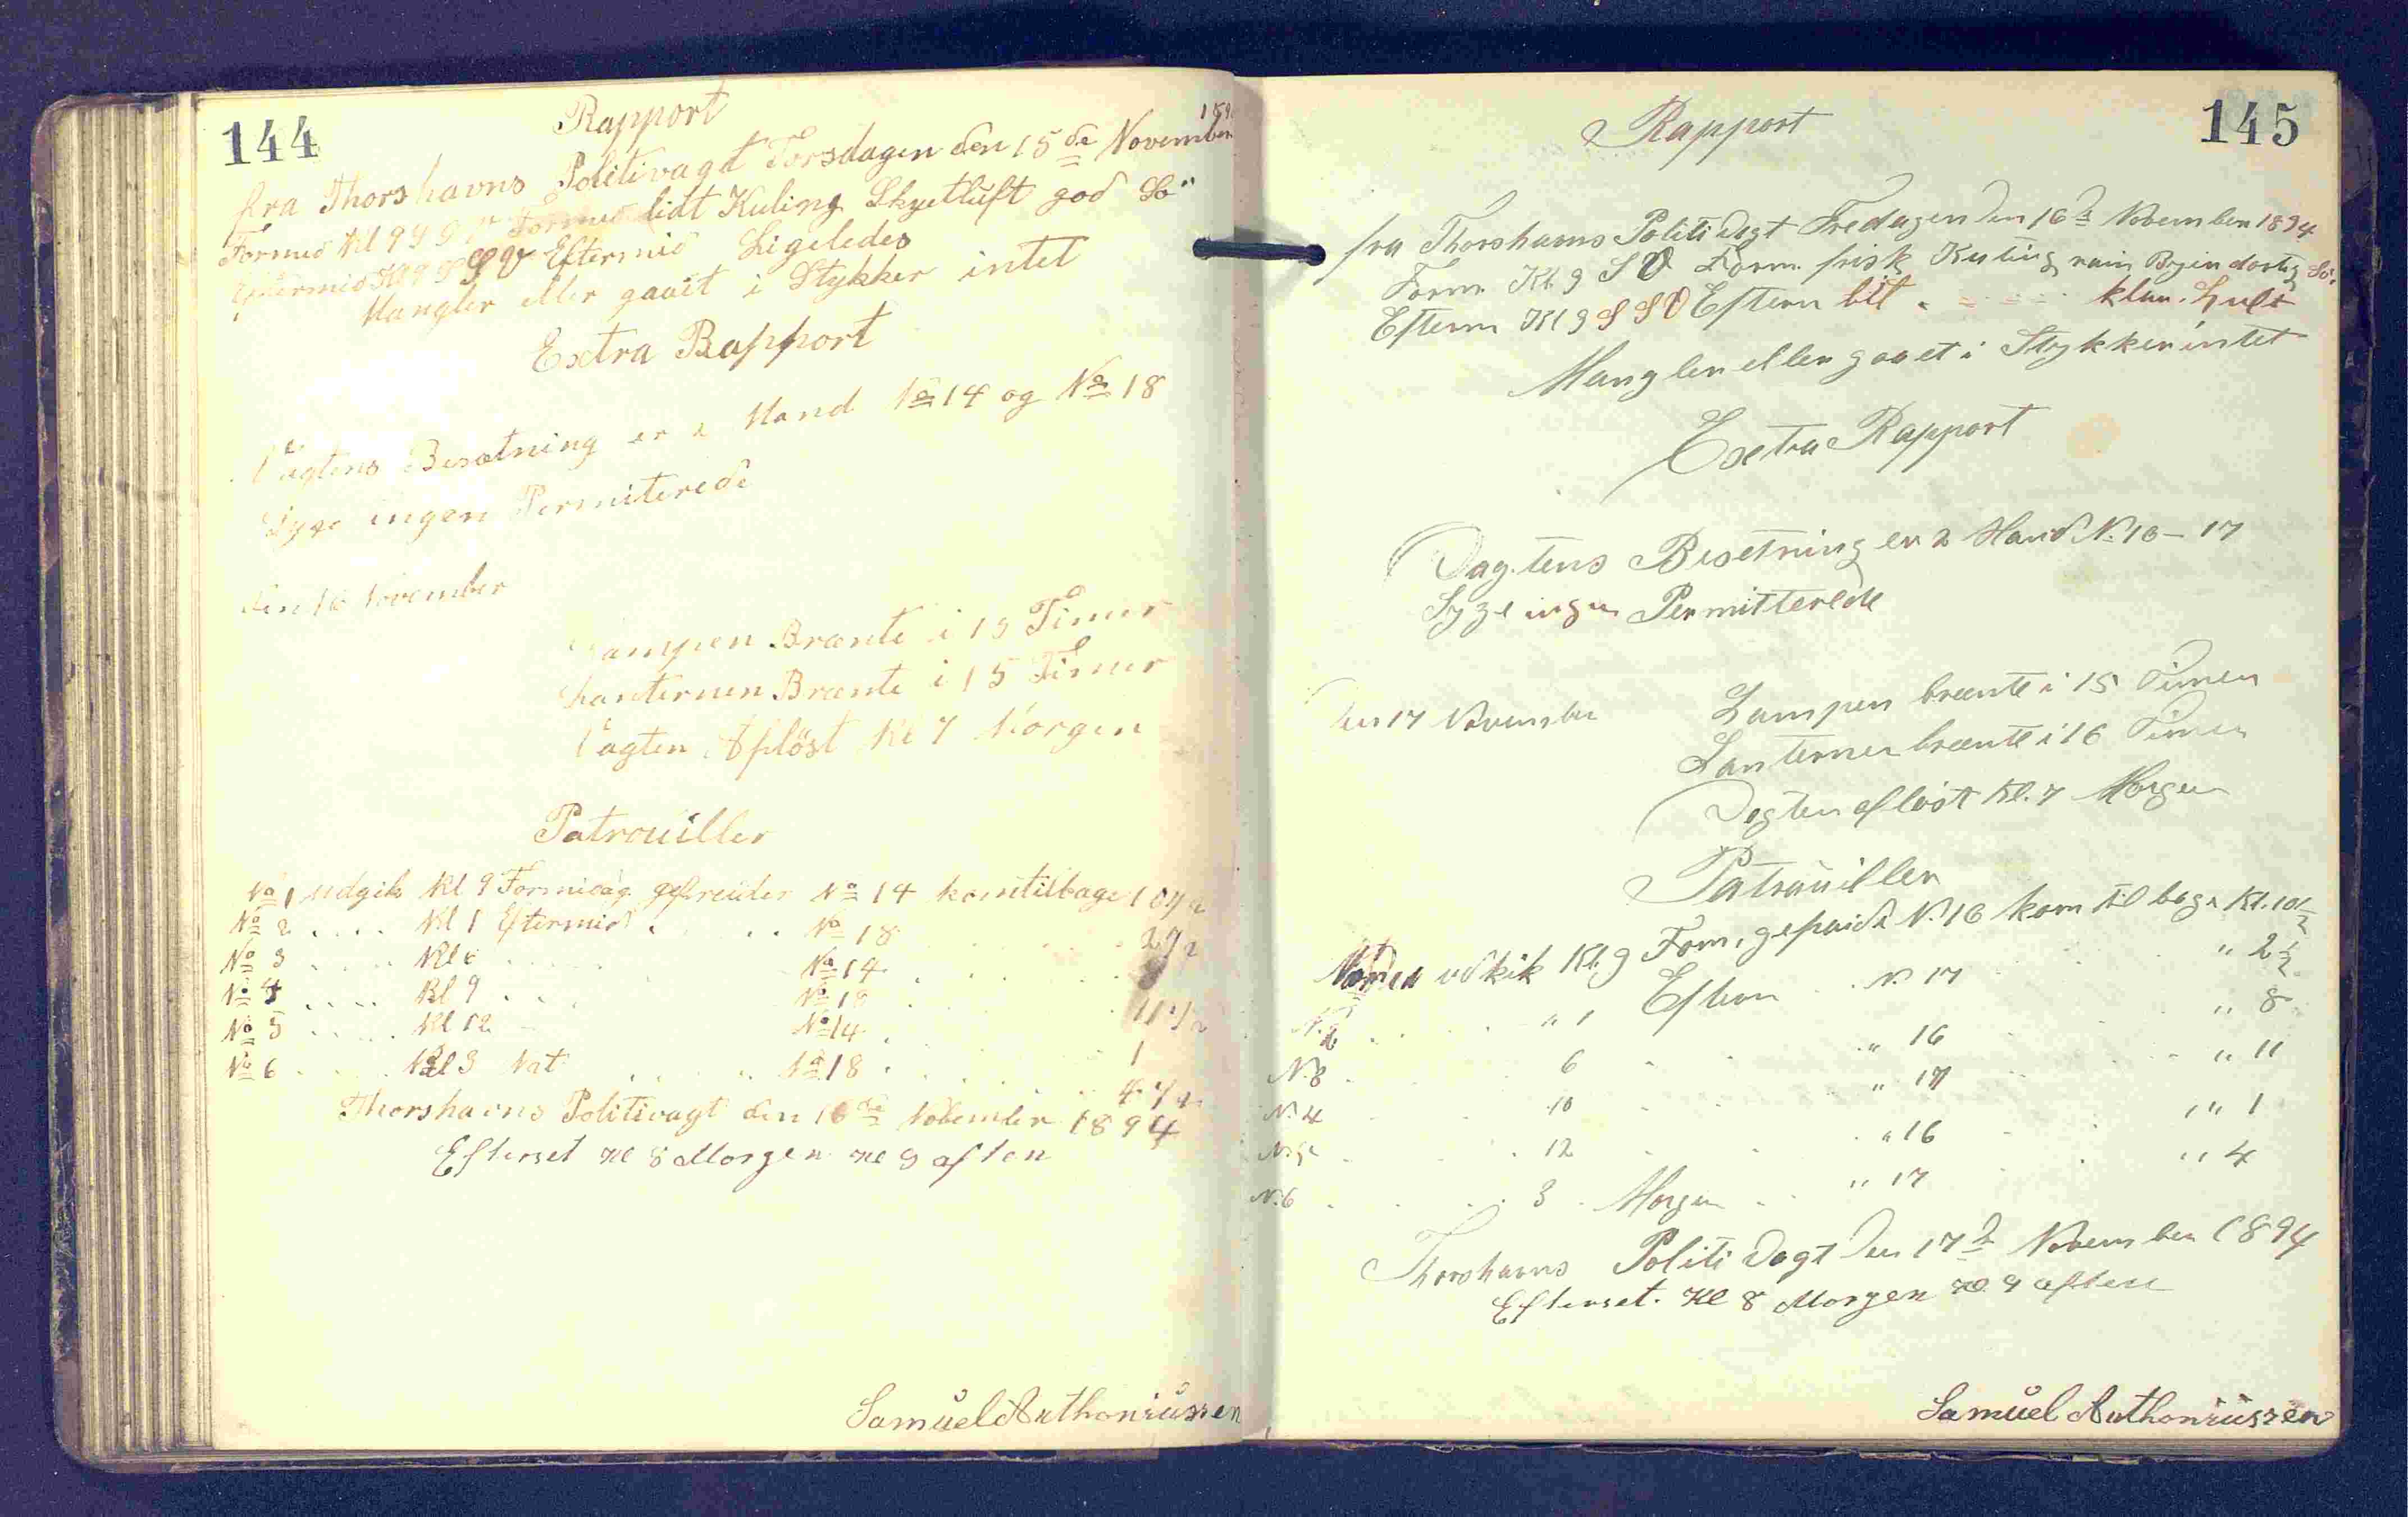 144
Rapport
1894
fra Thorshavns Politivagt Torsdagen den 15de November
Formid Kl 9 Formid lidt Kuling Skyetluft god Sö
Eftermid Kl 9 S V Eftermid Ligeledes
Mangler eller gaait i Stykker intet
Extra Rapport
Vagtens Besætning er 2 Mand No 14 og No 18
Syge ingen Permiterede
den 16 November
Lampen Brænte i 15 Timer
Lanternen Brænte i 15 Timer
Vagten Aflöst Kl 7 Morgen
Patrouiller
No 1 udgik Kl 9 Formidag gefreider No 14 kom tilbage 10 1/2
No 2 .... Kl 1 Eftermid . . . No 18 2 1/2
No 3 .... Kl 6 No 14
No 4 .... Kl 9 No 18 11 1/2
No 5 .... Kl 12 No 14 1
No 6 .... Kl 3 Nat No 18 4 1/2
Thorshavns Politivagt den 16de November 1894
Efterset Kl 8 Morgen Kl 9 aften
Samuel Anthoniussen
145
Rapport
fra Thorshavns Politi Vagt Fredagen den 16d November 1894
Form Kl. 9 S V Form frisk Kuling Byin dorlig Sö.
Efterm Kl 9 S S V Efterm lit " = = = klar. Luft
Mangler eller gaaet i Stykker intet
Extra Rapport
Vagtens Besetning er 2 Mand N. 16 - 17
Syge ingen Permitterede
Den 17 November
Lampen brænte i 15 Timer
Lanternen brænte i 16 Timer
Vagten aflöst Kl. 7 Morgen
Patrouiller
udkik Kl. 9 Form. N. 16 kom til bage Kl. 10 1/2
N. 2 . . " 1 Efterm . . N. 17 " 2 1/2
N. 3 . . 6 . . " 16 " 8
N. 4 . . 10 . . " 17 " 11
N. 5 . . 12 . . " 16 " 1
N. 6 . . 3 . Morgen . . " 17 " 4
Thorshavns Politi Vagt Den 17d November 1894
Efterset. Kl 8 Morgen Kl 9 aften
Samuel Anthoniussen